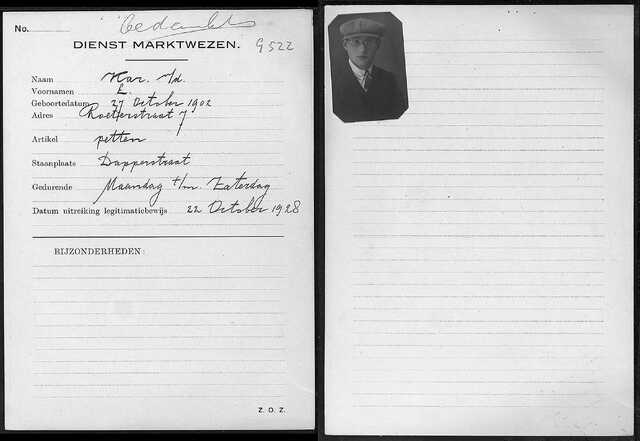 No.
Bedankt
DIENST MARKTWEZEN. G 522
Naam Kar. v/d.
Voornamen L.
Geboortedatum 27 October 1902
Adres Roeterstraat 7
Artikel petten
Staanplaats Dapperstraat
Gedurende Maandag t/m. Zaterdag
Datum uitreiking legitimatiebewijs 22 October 1928
BIJZONDERHEDEN:
Z. O. Z.